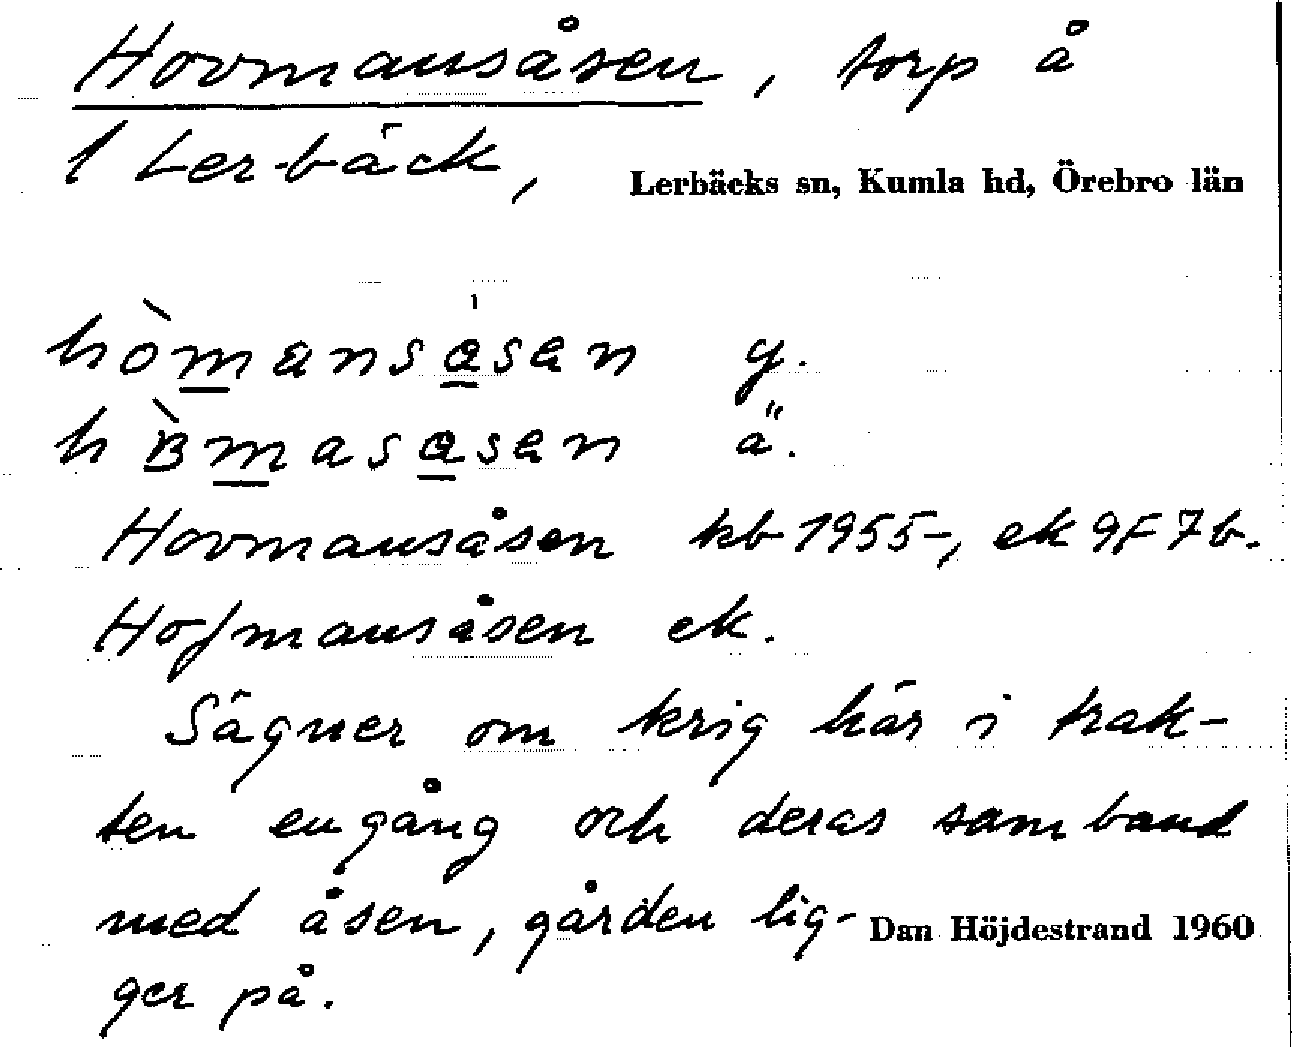 Hovmansåsen, torp å
1 Lerbäck,
Lerbäcks sn, Kumla hd, Örebro län
hòmansåsan y.
hòmasasan ä.
Hovmansåsen kb 1955-, ek 9F7b.
Hofmansåsen ek.
Sägner om krig här i trak-
ten engång och deras samband
med åsen, gården lig-
Dan Höjdestrand 1960
ger på.